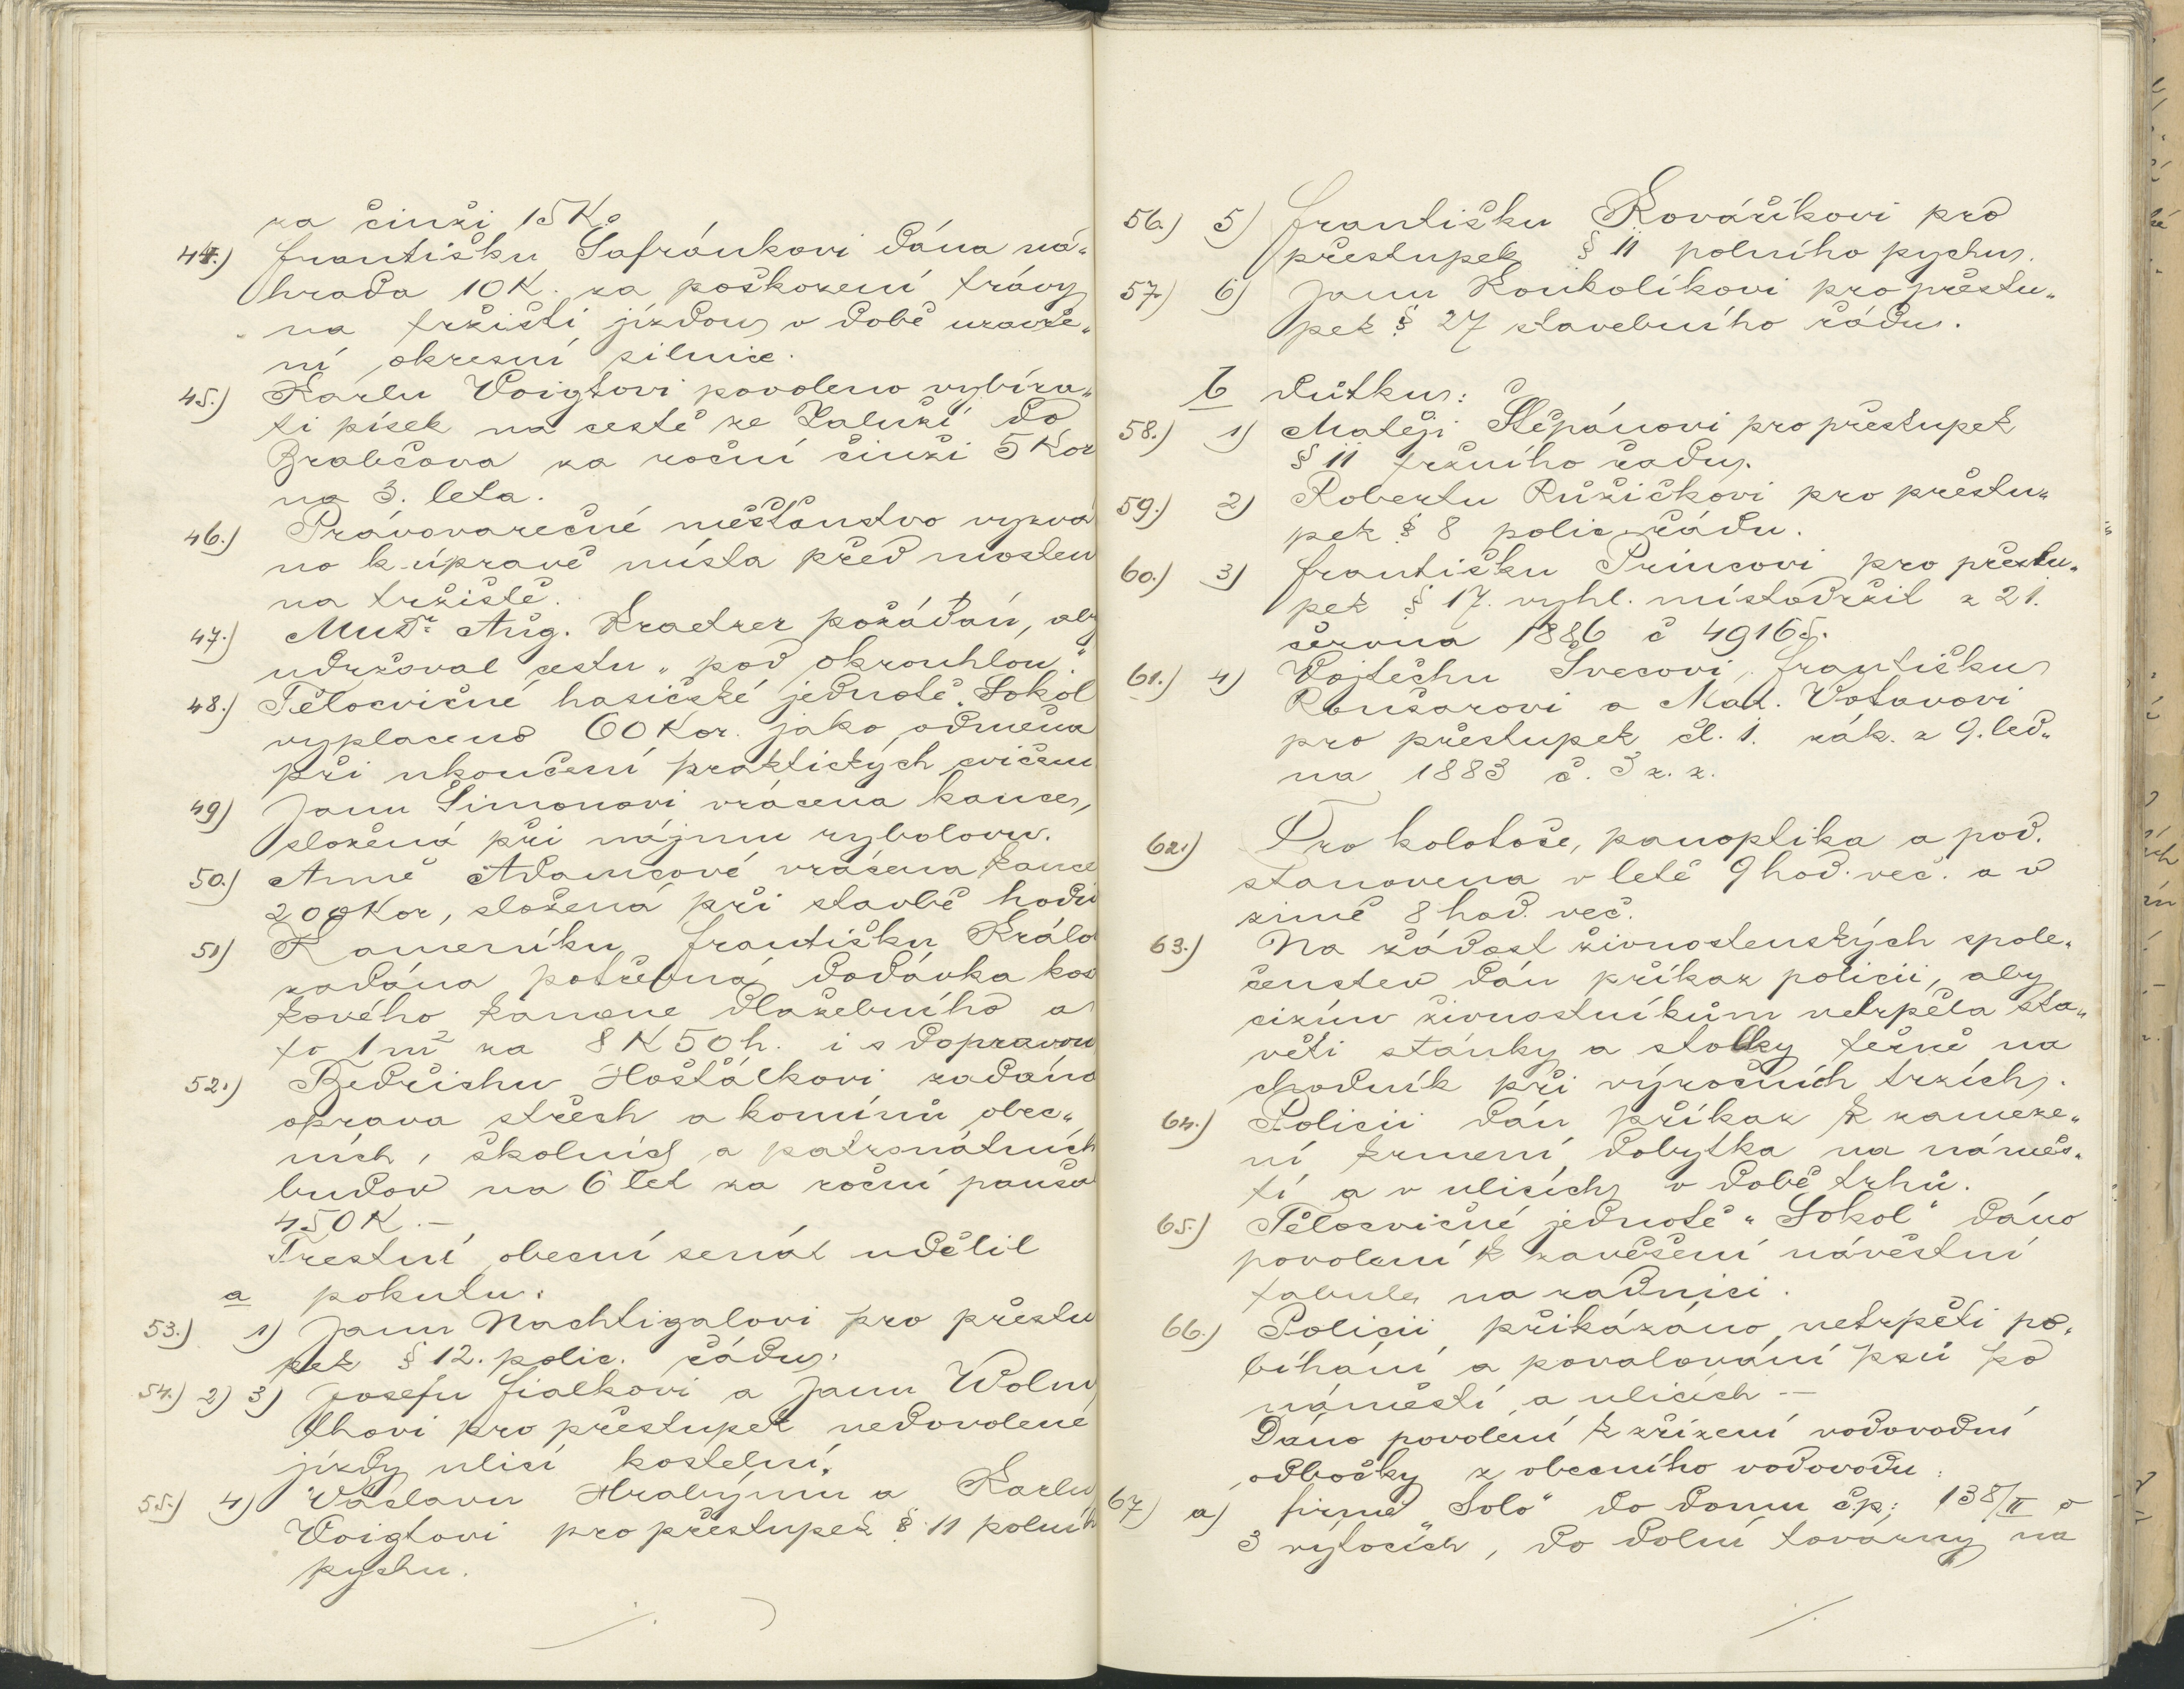 za činži 15 K.
44.) Františku Šafránkovi dána ná„
hrada 10 K. za poškození trávy
na tržišti jízdou v době uzavře„
ní okresní silnice.
45.) Karlu Voigtovi povoleno vybíra„
ti písek na cestě ze Zaluží do
Brabčova za roční činži 5 Kor
na 3. leta.
46.) Právovarečné měšťanstvo vyzvá
no k úpravě místa před mostem
na tržiště.
47.) MuDr. Aug. Kraetzer požádán, aby
udržoval cestu „pod okrouhlou."
48.) Tělocvičné hasičské jednotě „Sokol
vyplaceno 60 Kor. jako odměna
při ukončení praktických cvičení
49) Janu Šimonovi vrácena kauce,
složená při nájmu rybolovu.
50.) Anně Adamcové vrácena kauce
200 Kor, složená při stavbě hodin
51) Kameníku Františku Králo
zadána potřebná dodávka kos
kového kamene dlažebního a
to 1 m² za 8 K 50 h. i s dopravou
52.) Bedřichu Hošťálkovi zadána
oprava střech a komínů obec„
ních, školních a patronátních
budov na 6 let za roční paušál
450 K. –
Trestní obecní senát udělil
a pokutu:
53.) 1) Janu Nachtigalovi pro přestu
pek § 12. polic. řádu.
54.) 2) 3) Josefu Fialkovi a Janu Wolmu
thovi pro přestupek nedovolené
jízdy ulicí kostelní.
55.) 4) Václavu Hrabýmu a Karlu
Voigtovi pro přestupek § 11 polníh
pychu.
./.
56.) 5) Františku Kovaříkovi pro
přestupek § 11 polního pychu.
57.) 6) Janu Koukolíkovi pro přestu„
pek § 27 stavebního řádu.
b důtku:
58.) 1) Matěji Štěpánovi pro přestupek
§ 11 tržního řadu.
59.) 2) Robertu Růžičkovi pro přestu„
pek § 8 polic. řádu.
60.) 3) Františku Princovi pro přestu„
pek § 17. vyhl. místodržit z 21.
června 1886 č 49165.
61.) 4) Vojtěchu Švecovi, Františku
Rousarovi a Mat. Votavovi
pro přestupek čl. 1. zák. z 9. led„
na 1883 č. 3 z. z.
62.) Pro kolotoče, panoptika a pod.
stanovena v letě 9 hod. več. a v
zimě 8 hod. več.
63.) Na žádost živnostenských spole„
čenstev dán příkaz policii, aby
cizím živnostníkům netrpěla sta„
věti stánky a stolky těsně na
chodník při výročních trzích.
64.) Policii dán příkaz k zameze„
ní krmení dobytka na náměs„
tí a v ulicích v době trhů.
65.) Tělocvičné jednotě „Sokol" dáno
povolení k zavěšení návěstní
tabule na radnici.
66.) Policii přikázáno netrpěti po„
bíhání a povalování psů po
náměstí a ulicích –
Dáno povolení k zřízení vodovodní
odbočky z obecního vodovodu:
67) a) firmě „Solo" do domu čp: 138/II o
3 výtocích, do dolní továrny na
./.